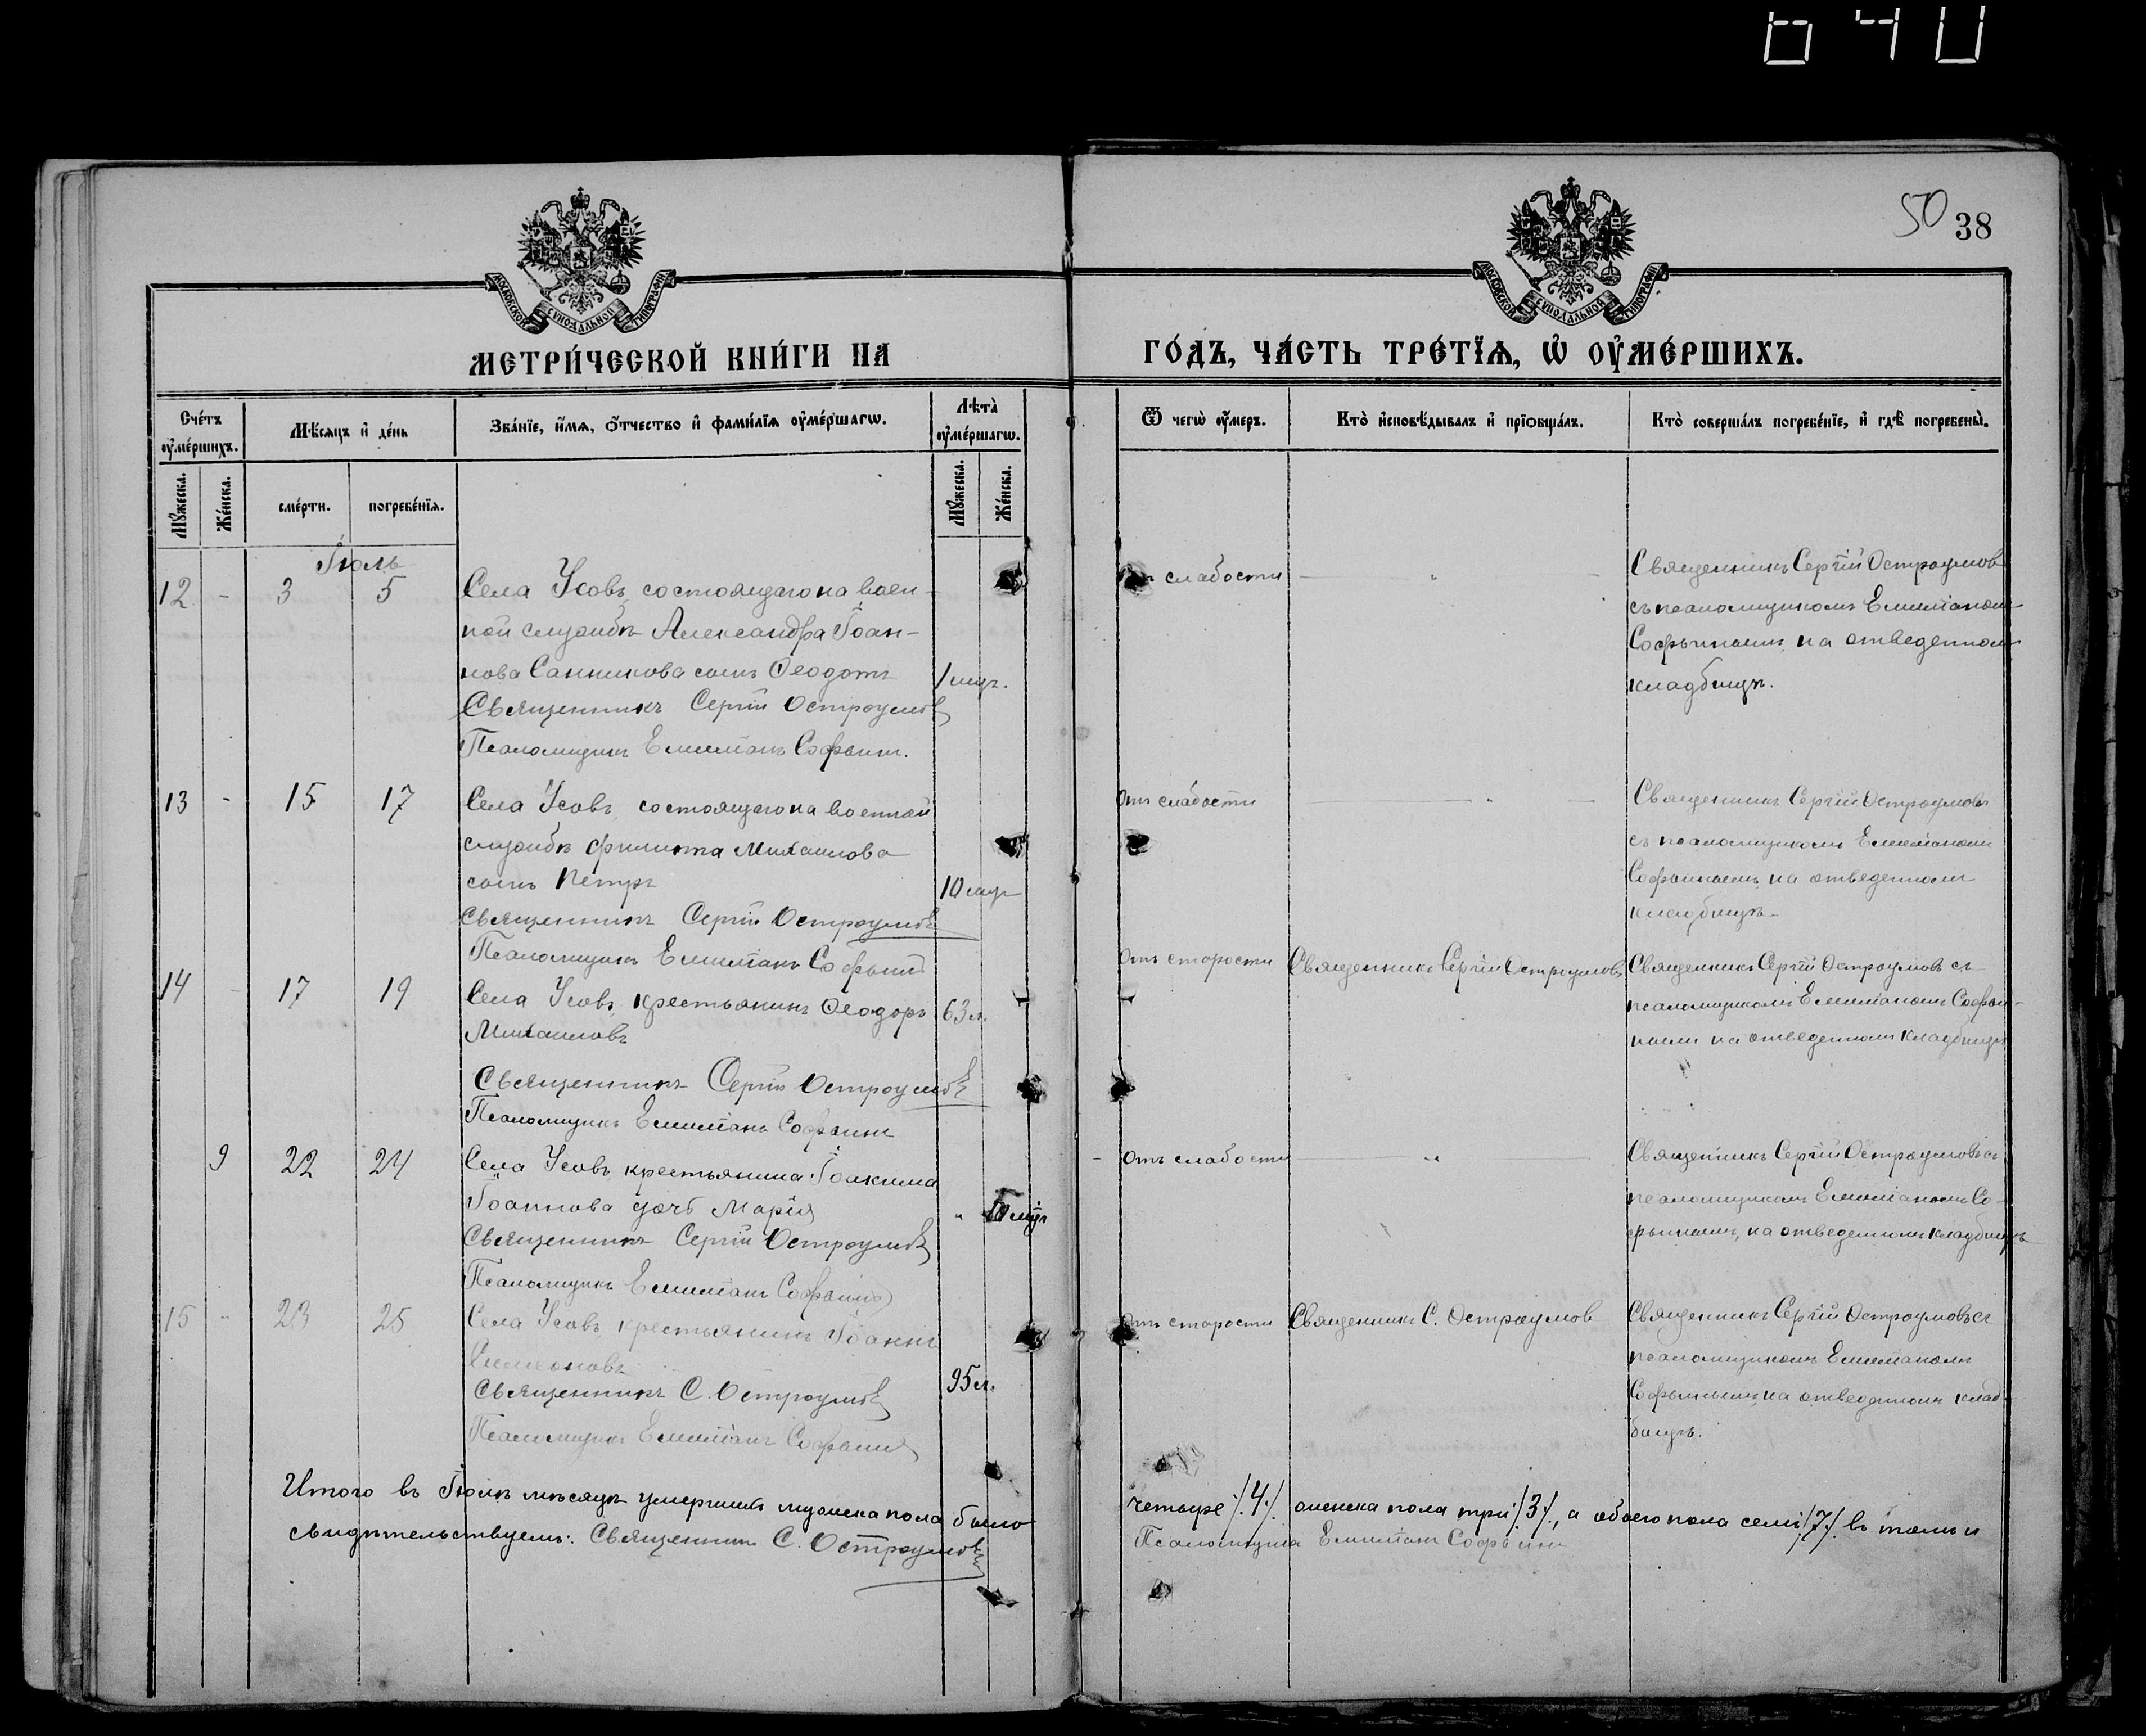 640
50 38
МОСКОВСКОЙ СѴНОДАЛЬНОЙ ТИПОГРАФІИ
МОСКОВСКОЙ СѴНОДАЛЬНОЙ ТИПОГРАФІИ
МЕТРИ́ЧЕСКОЙ КНИ́ГИ НА
ГО́ДЪ, ЧА́СТЬ ТРЕ́ТЇѦ, Ѡ҆ ОУ҆МЕ́РШИХЪ.
Сче́тъ оу҆ме́ршихъ.
Мѣ́сяцъ и҆ де́нь
Зва́нїе, и҆́мя, ѻ҆́тчество и҆ фами́лїя оу҆ме́ршагѡ.
Лѣ́та̀ оу҆ме́ршагѡ.
Ѿ чегѡ̀ оу҆́меръ.
Кто̀ и҆сповѣ́дывалъ и҆ прїѡбща́лъ.
Кто̀ соверша́лъ погребе́нїе, и҆ гдѣ̀ погребены̀.
Мꙋ́жеска.
Же́нска.
сме́рти.
погребе́нїя.
Мꙋ́жеска.
Же́нска.
Іюль
12 - 3 5 Села Усовъ, состоящаго на воен-
ной службѣ Александра Іоан-
нова Санникова сынъ Ѳеодотъ 1 мц.
Священникъ Сергій Остроумовъ
Псаломщикъ Емиліанъ Софьинъ.
слабости - „ -
Священникъ Сергій Остроумовъ
съ псаломщикомъ Емиліаномъ
Софьинымъ, на отведенномъ
кладбищѣ.
13 - 15 17 Села Усовъ, состоящаго на военной
службѣ Филиппа Михаилова
сынъ Петръ 10 мц.
Священникъ Сергій Остроумовъ
Псаломщикъ Емиліанъ Софьинъ
Отъ слабости - „ -
Священникъ Сергій Остроумовъ
съ псаломщикомъ Емиліаномъ
Софьинымъ, на отведенномъ
кладбищѣ.
14 - 17 19 Села Усовъ, крестьянинъ Ѳеодоръ 63 л.
Михаиловъ
Священникъ Сергій Остроумовъ
Псаломщикъ Емиліанъ Софьинъ
Отъ старости Священникъ Сергій Остроумовъ
Священникъ Сергій Остроумовъ съ
псаломщикомъ Емиліаномъ Софьи-
нымъ на отведенномъ кладбищѣ
9 22 24 Села Усовъ, крестьянина Іоакима
Іоаннова дочь Марія „ мц.
Священникъ Сергій Остроумовъ
Псаломщикъ Емиліанъ Софьинъ
Отъ слабости - „ -
Священникъ Сергій Остроумовъ съ
псаломщикомъ Емиліаномъ Со-
фьинымъ, на отведенномъ кладбищѣ
15 - 23 25 Села Усовъ крестьянинъ Іоаннъ
Симеоновъ 95 л.
Священникъ С. Остроумовъ
Псаломщикъ Емиліанъ Софьинъ
Отъ старости Священникъ С. Остроумовъ
Священникъ Сергій Остроумовъ съ
псаломщикомъ Емиліаномъ
Софьинымъ, на отведенномъ клад-
бищѣ.
Итого въ Іюлѣ мѣсяцѣ умершихъ мужеска пола было четыре /.4./ женска пола три /.3./, а обоего пола семь /.7./ въ томъ и
свидѣтельствуемъ: Священникъ С. Остроумовъ Псаломщикъ Емиліанъ Софьинъ